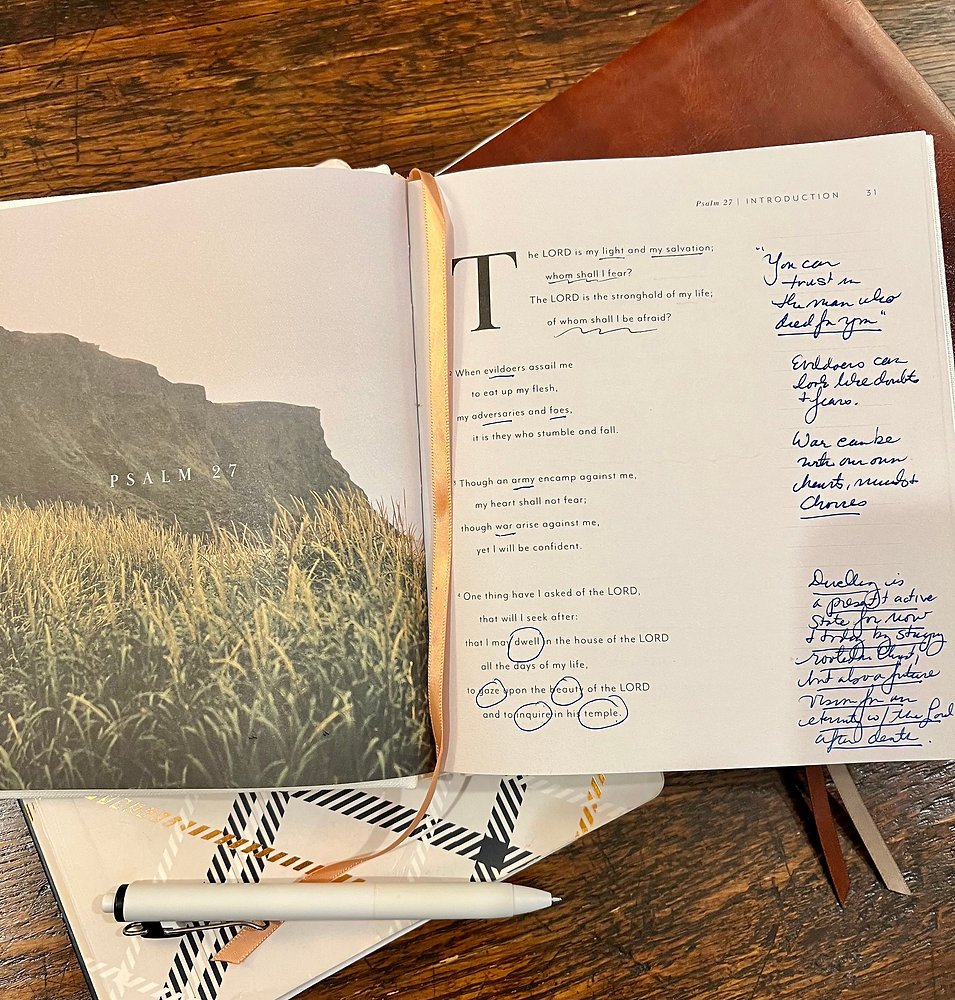 PSALM 27
Psalm 27 | INTRODUCTION 31
The LORD is my light and my salvation;
whom shall I fear?
The LORD is the stronghold of my life;
of whom shall I be afraid?
2 When evildoers assail me
to eat up my flesh,
my adversaries and foes,
it is they who stumble and fall.
3 Though an army encamp against me,
my heart shall not fear;
though war arise against me,
yet I will be confident.
4 One thing have I asked of the LORD,
that will I seek after:
that I may dwell in the house of the LORD
all the days of my life,
to gaze upon the beauty of the LORD
and to inquire in his temple.
"You can
trust in
the man who
died for you"
Evildoers can
look like doubts
+ fears.
War can be
with our own
hearts, minds +
choices
Dwelling is
a present + active
state for now
+ today by staying
rooted in Christ,
but also a future
vision for an
eternity w/ the Lord
after death.